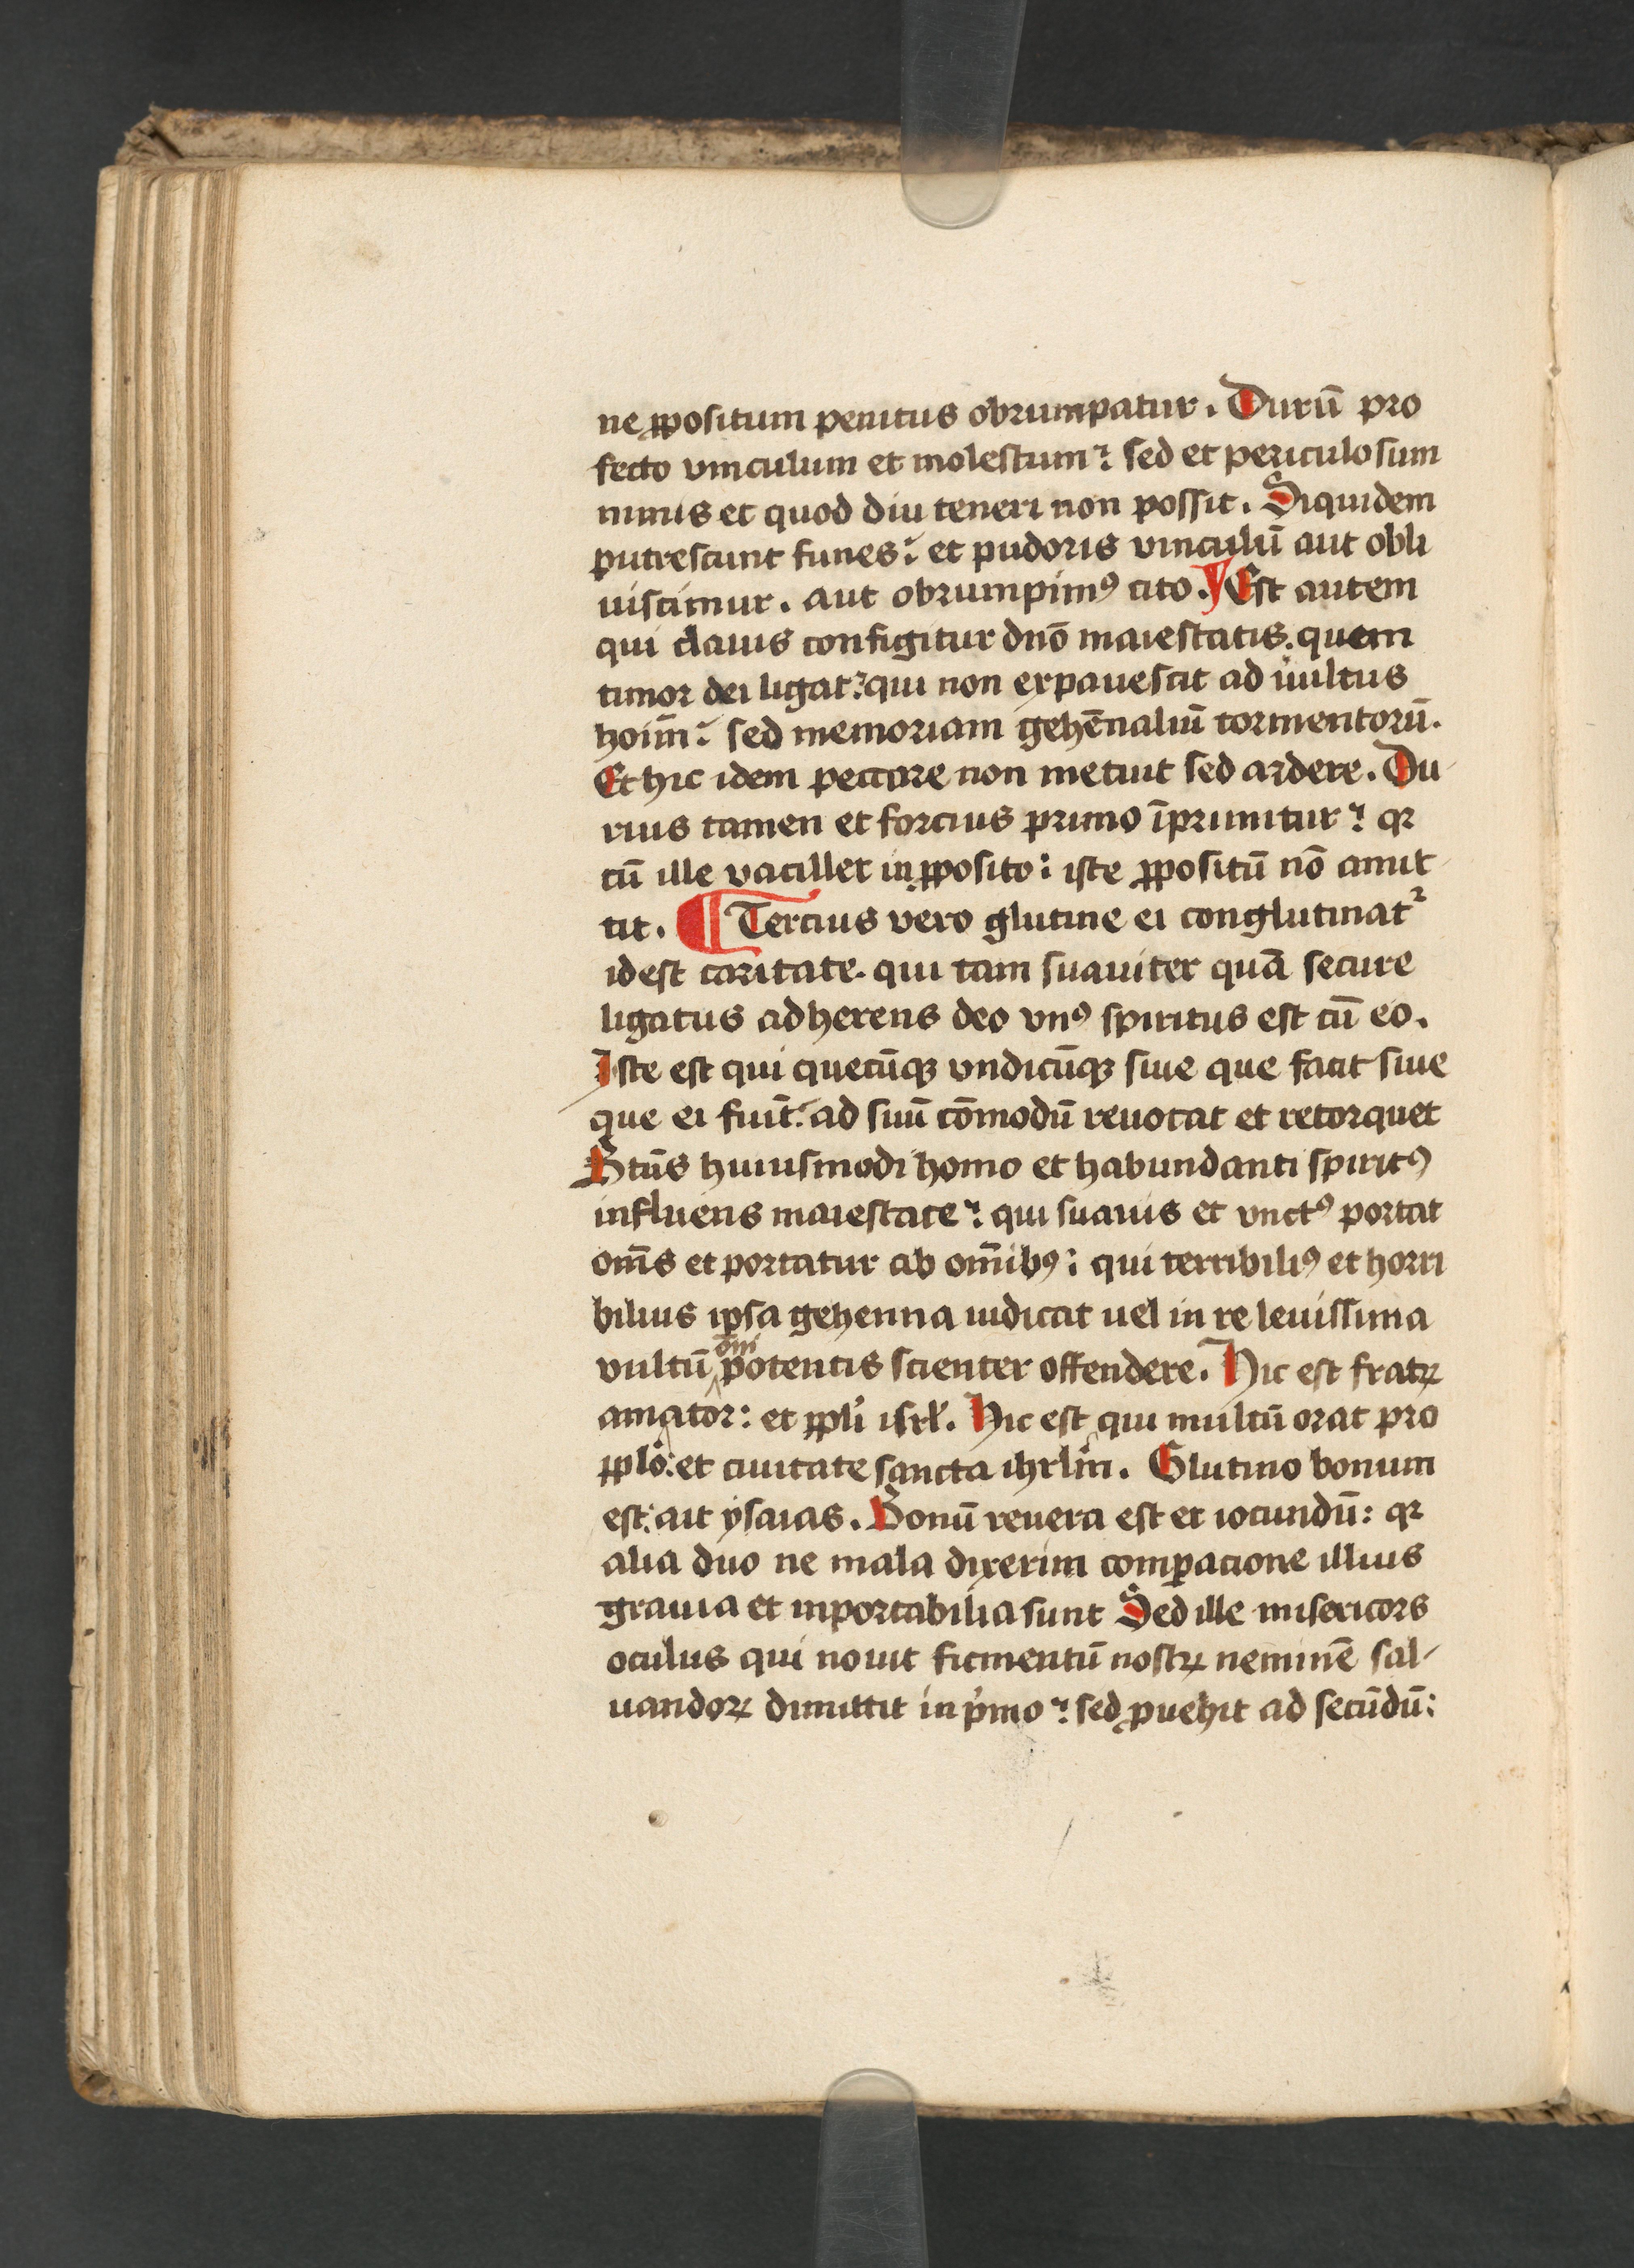 ne ꝓpositum penitus obrumpatur. Durū pro
fecto vinculum et molestum: sed et periculosum
nimis et quod diu teneri non possit. Siquidem
putrescunt funes: et pudoris vinculū aut obli
uiscimur. aut obrumpimꝰ cito. Est autem
qui clauis configitur dnō maiestatis. quem
timor dei ligat: qui non expauescit ad uultus
hoīm: sed memoriam gehēnaliū tormentorū.
Et hic idem peccare non metuit sed ardere. Du
rius tamen et forcius primo īprimitur: qꝛ
cū ille vacillet in ꝓposito: iste ꝓpositū nō amit
tit. ¶ Tercius vero glutine ei conglutinatᷣ
id est caritate. qui tam suauiter quā secure
ligatus adherens deo vnꝰ spiritus est cū eo.
Iste est qui quecūqꝫ vndicūqꝫ siue que facit siue
que ei fiūt: ad suū cōmodū reuocat et retorquet
Btūs huiusmodi homo et habundanti spiritꝰ
influens maiestate: qui suauis et vnctꝰ portat
om̄s et portatur ab om̄ibꝰ: qui terribiliꝰ et horri
bilius ipsa gehenna iudicat uel in re leuissima
vultū om̄ipotentis scienter offendere. Hic est fratꝝ
amator: et ꝓpli isrl̕. Hic est qui multū orat pro
ꝓplo: et ciuitate sancta ihrlm̄. Glutino bonum
est: ait ysaias. Bonū reuera est et iocundū: qꝛ
alia duo ne mala dixerim comꝑacione illius
grauia et inportabilia sunt Sed ille misericors
oculus qui nouit ficmentū nostꝝ neminē sal-
uandoꝝ dimittit in p̍mo: sed ꝓuehit ad secūdū: